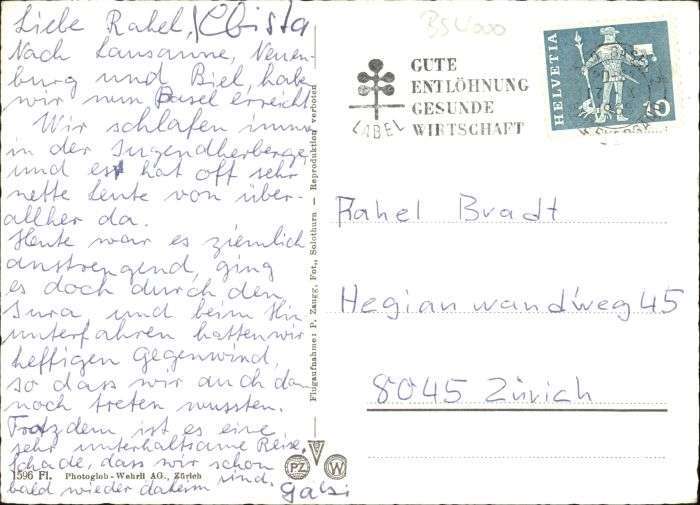 Liebe Rahel,
Nach Lausanne, Neuen-
burg und Biel, habe
wir nun Basel erreicht
Wir schlafen imme
in der Jugendherberge
und es hat oft sehr
nette Leute von über-
allher da.
Heute war es ziemlich
anstrengend, ging
es doch durch den
Jura und beim Hin
unterfahren hatten wir
heftigen Gegenwind,
so dass wir auch da
noch treten mussten.
Trotzdem ist es eine
sehr unterhaltsame Reise.
Schade, dass wir schon
bald wieder daheim sind.
Gabi
1596 Fl. Photoglob-Wehrli AG., Zürich
Flugaufnahme: P. Zaugg, Fot., Solothurn — Reproduktion verboten
PZ
W
GUTE
ENTLÖHNUNG
GESUNDE
WIRTSCHAFT
LABEL
HELVETIA
10
Rahel Bradt
Hegianwandweg 45
8045 Zürich